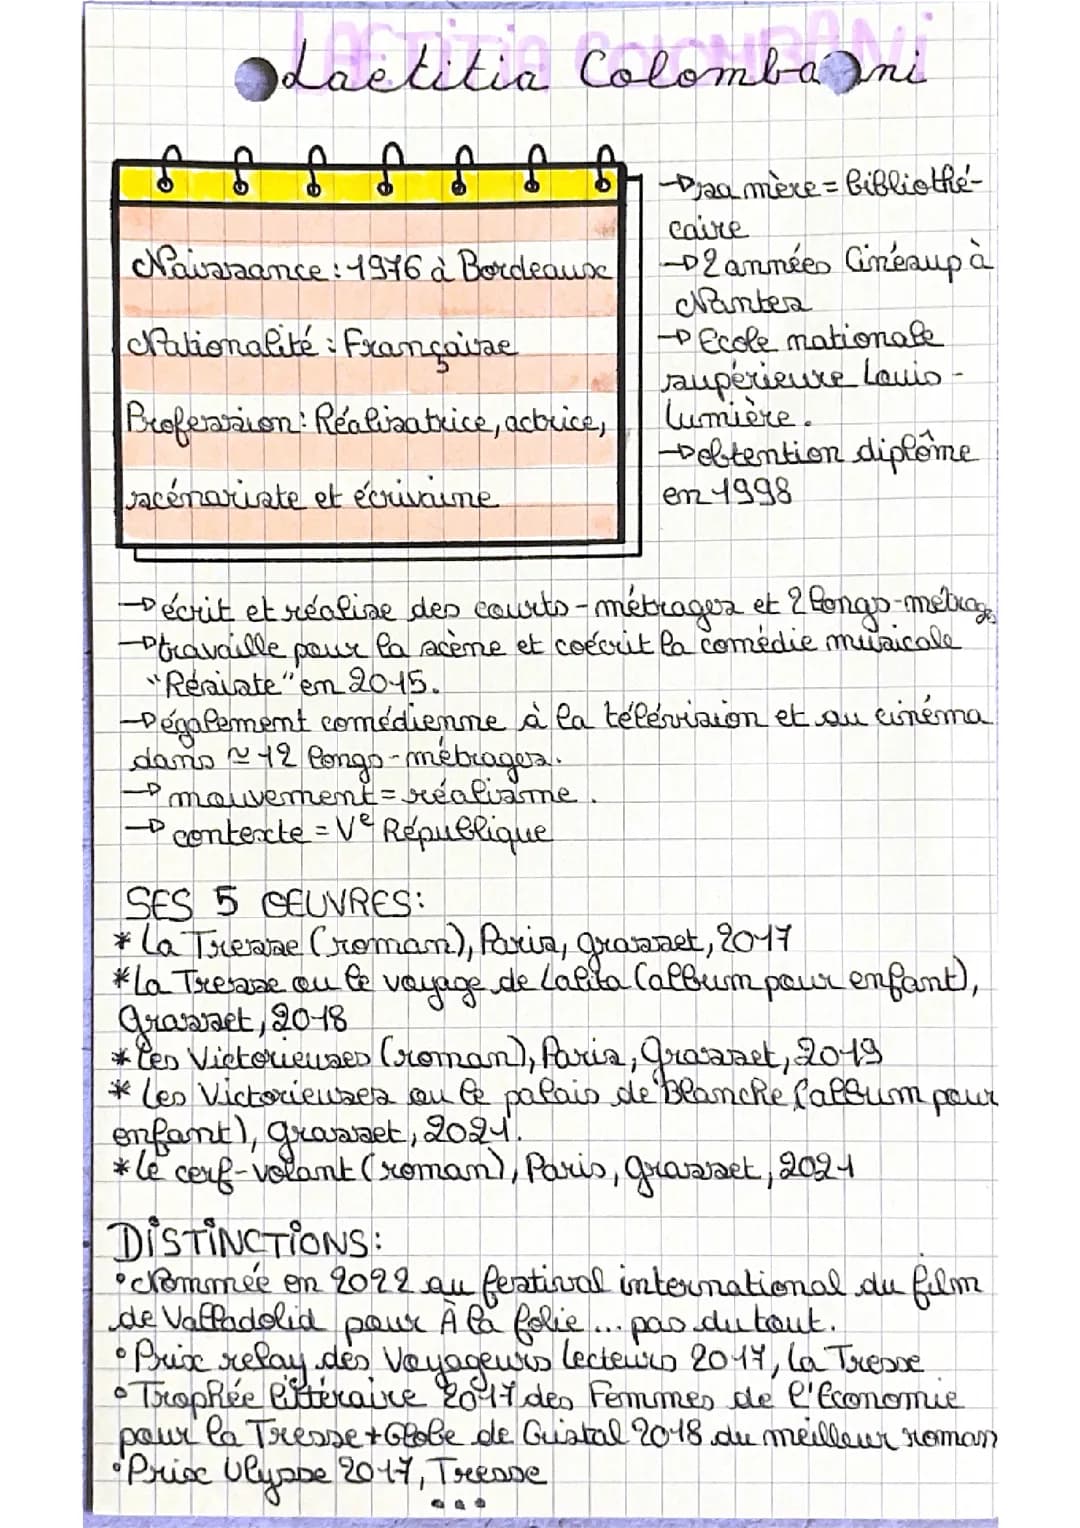 Laetitia Colombani
Naissance : 1976 à Bordeaux
Nationalité : Française
Profession : Réalisatrice, actrice,
scénariste et écrivaine
→ sa mère = bibliothé-
caire
→ 2 années Cinésup à
Nantes
→ Ecole nationale
supérieure Louis-
Lumière.
→ obtention diplôme
en 1998
→ écrit et réalise des courts-métrages et 2 longs-métrages
→ travaille pour la scène et coécrit la comédie musicale
"Résiste" en 2015.
→ également comédienne à la télévision et au cinéma
dans ≃ 12 longs-métrages.
→ mouvement = réalisme.
→ contexte = Ve République
SES 5 OEUVRES:
* La Tresse (roman), Paris, grasset, 2017
* La Tresse ou le voyage de Lalita (album pour enfant),
grasset, 2018
* Les Victorieuses (roman), Paris, grasset, 2019
* Les Victorieuses ou le palais de Blanche (album pour
enfant), grasset, 2021.
* Le cerf-volant (roman), Paris, grasset, 2021
DISTINCTIONS:
• Nommée en 2022 au festival international du film
de Valladolid pour À la folie... pas du tout.
• Prix relay des Voyageurs lecteurs 2017, la Tresse
• Trophée littéraire 2017 des Femmes de l'Economie
pour la Tresse + Globe de Cristal 2018 du meilleur roman
• Prix Ulysse 2017, Tresse
...